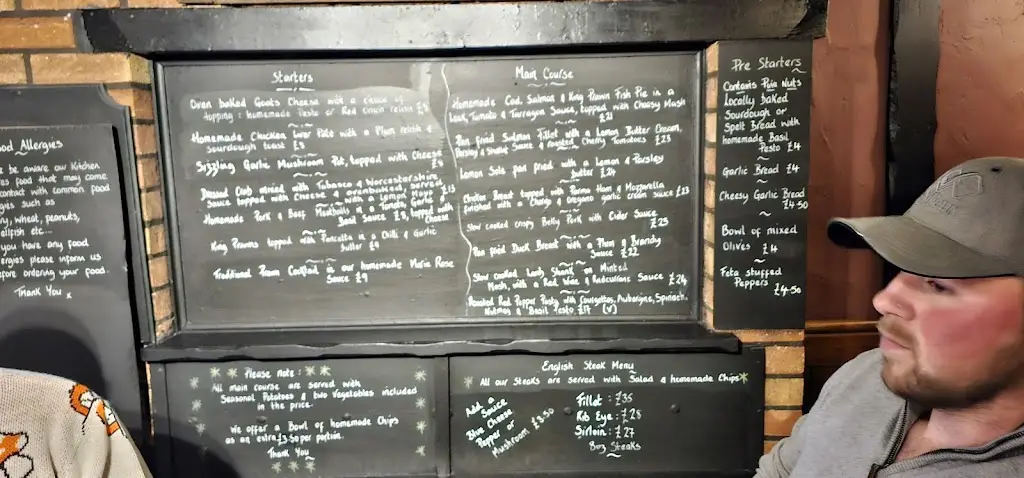 Food Allergies
be aware our Kitchen
food that may come
contact with common food
such as
wheat, peanuts,
etc...
you have any food
please inform us
before ordering your food.
Thank You x
Starters
Oven baked Goats Cheese with a choice of
topping: homemade Pesto or Red Onion relish £9
Homemade Chicken Liver Pate with a Plum relish &
sourdough toast £9
Sizzling Garlic Mushroom Pot, topped with Cheese
£9
Dressed Crab mixed with Tabasco & Worcestershire
Sauce topped with Cheese & ovenbaked, served
with a Lemon £13
Homemade Pork & Beef Meatballs in a Tomato, Garlic &
Basil Sauce £9, topped with
Cheese
King Prawns topped with Pancetta in a Chilli & Garlic
Butter £9
Traditional Prawn Cocktail in our homemade Marie Rose
Sauce £9
Main Course
Homemade Cod, Salmon & King Prawn Fish Pie in a
Leek, Tomato & Tarragon Sauce, topped with Cheesy Mash
£21
Pan fried Salmon Fillet with a Lemon Butter Cream,
Parsley & Shallot Sauce & roasted Cherry Tomatoes £25
Lemon Sole pan fried with a Lemon & Parsley
Butter £24
Chicken Breast topped with Parma Ham & Mozzarella
finished with a Cherry & Oregano garlic cream sauce £23
Slow cooked crispy Belly Pork with Cider Sauce
£23
Pan fried Duck Breast with a Plum & Brandy
Sauce £22
Slow cooked Lamb Shank on Minted
Mash, with a Red Wine & Redcurrant Sauce £24
Roasted Red Pepper Pasty with Courgettes, Aubergine, Spinach,
Nutmeg & Basil Pesto £17 (v)
Pre Starters
Contains Pine Nuts
Locally baked
Sourdough or
Spelt Bread with
homemade Basil
Pesto £4
Garlic Bread £4
Cheesy Garlic Bread
£4.50
Bowl of mixed
Olives £4
Feta stuffed
Peppers £4.50
Please note:
All main course are served with
Seasonal Potatoes & two Vegetables included
in the price.
We offer a Bowl of homemade Chips
as an extra £3.50 per portion.
Thank You
English Steak Menu
All our Steaks are served with Salad & homemade Chips
Add a Sauce
Blue Cheese
Pepper or
Mushroom £3.50
Fillet: £35
Rib Eye: £28
Sirloin: £27
8oz Steaks